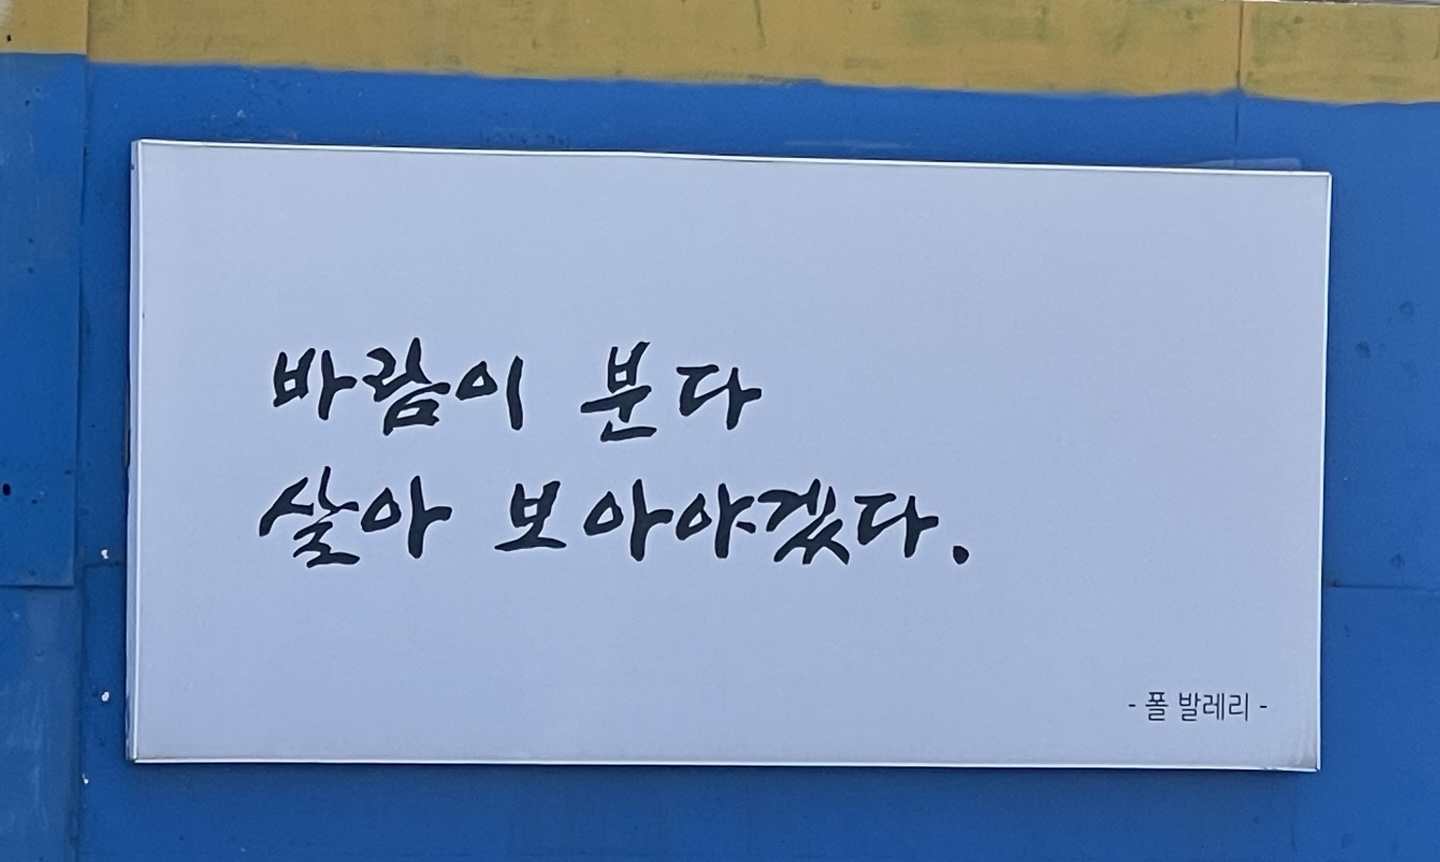 바람이 분다
살아 보아야겠다.
- 폴 발레리 -